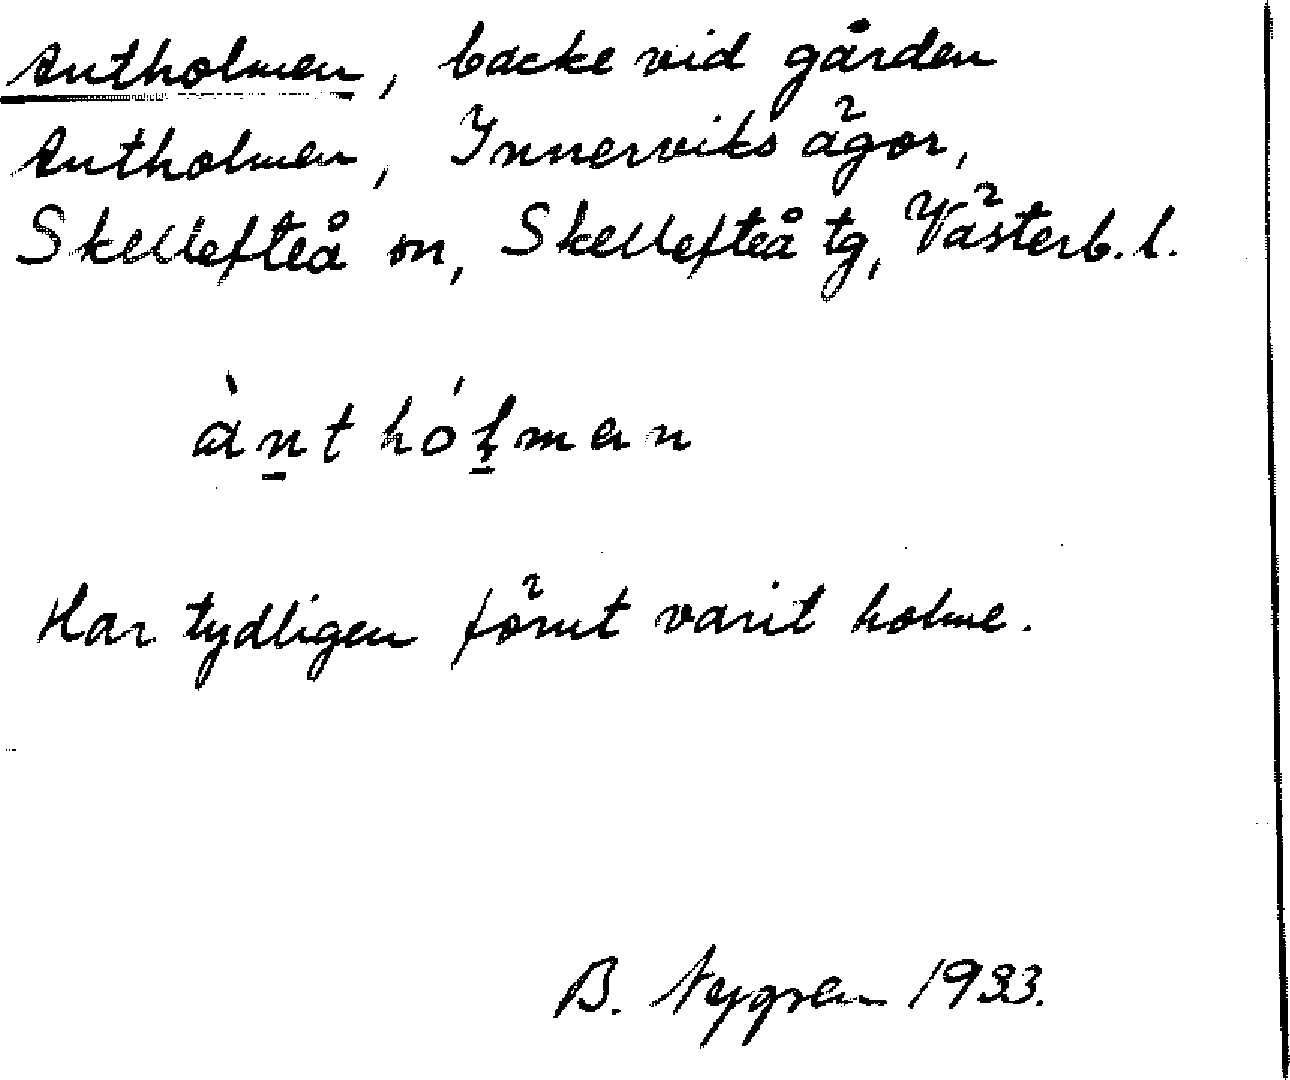 Antholmen, backe vid gården
Antholmen, Innerviks ägor,
Skellefteå sn, Skellefteå tg, Västerb. l.
àn̠t hól̠man
Har tydligen förut varit holme.
B. Nygren 1933.